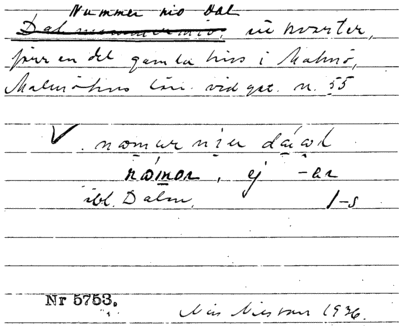 Nummer nio Dal
Dal nummer nio, ett kvarter,
förr en del gamla hus i Malmö,
Malmöhus län. vid gat. n. 55
✓. nomur nier dáal
nómor, ej -ar
ibl. Dalen. 1-s
Nr 5753.
Nils 1936.